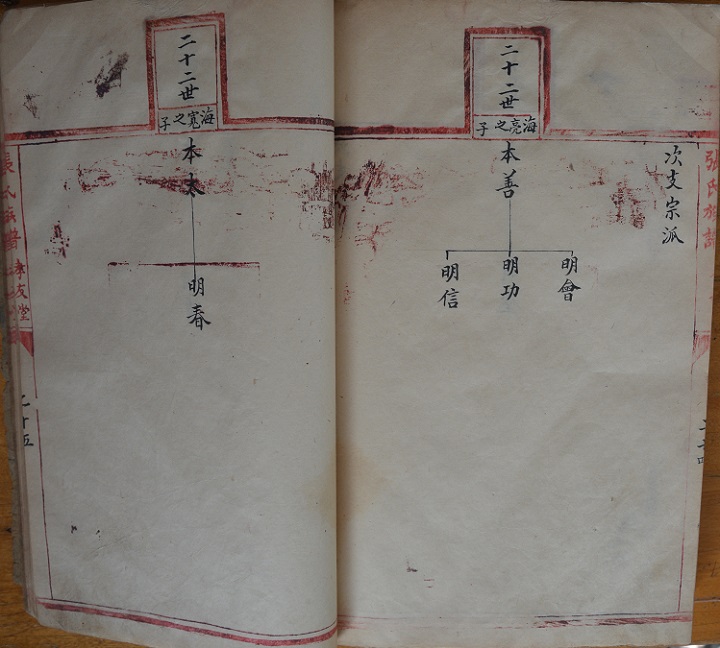 張氏族譜
次支宗派
二十二世
海亮之子
本善
明會
明功
明信
二十二世
海寬之子
本太
明春
孝友堂
二十五